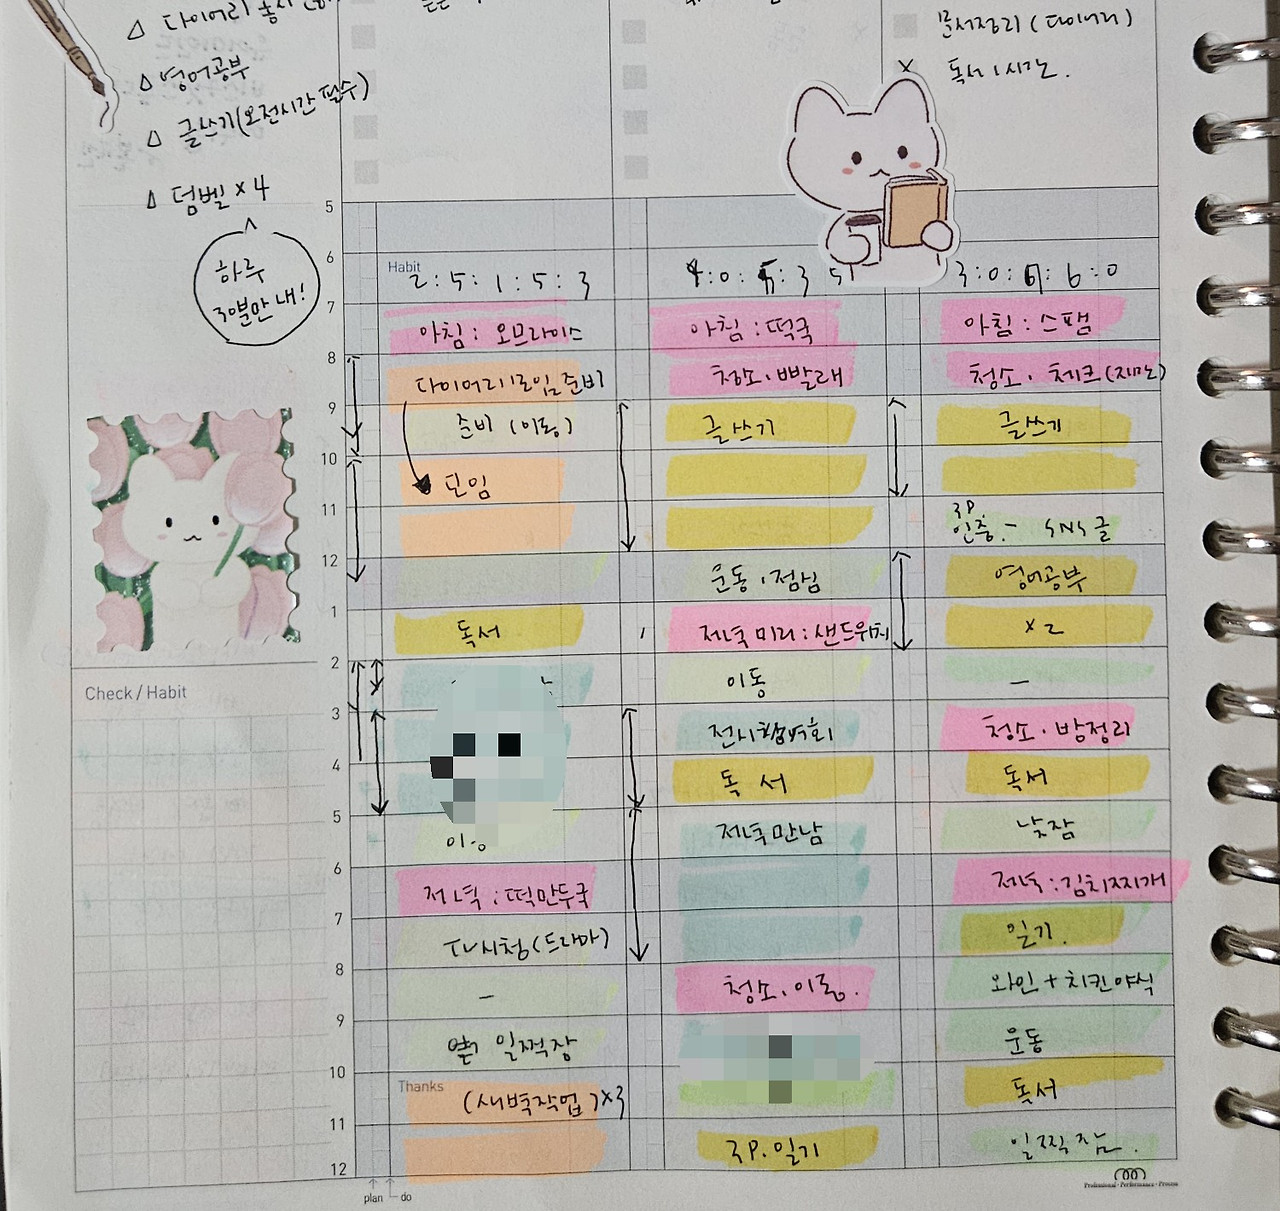 △ 다이어리
△ 영어공부
△ 글쓰기(오전시간 필수)
△ 덤벨 × 4
하루
30분만 내!
문서정리 (다이어리)
× 독서 1시간.
Check / Habit
5
6
7
8
9
10
11
12
1
2
3
4
5
6
7
8
9
10
11
12
plan
do
Habit
2 : 5 : 1 : 5 : 3
아침 : 오므라이스
다이어리/모임 준비
준비 (이동)
모임
독서
저녁 : 떡만두국
TV시청(드라마)
–
일찍잠
Thanks
(새벽작업)×3
아침 : 떡국
청소 · 빨래
글쓰기
운동 · 점심
저녁 미리 : 샌드위치
이동
전시회
독서
저녁 만남
청소 · 이동.
3P. 일기
3 : 0 : 6 : 0
아침 : 스팸
청소 · 체크 (지만)
글쓰기
3P.
인증. – SNS 글
영어공부
× 2
–
청소 · 방정리
독서
낮잠
저녁 : 김치찌개
일기.
와인 + 치킨야식
운동
독서
일찍 잠.
Professional · Performance · Process